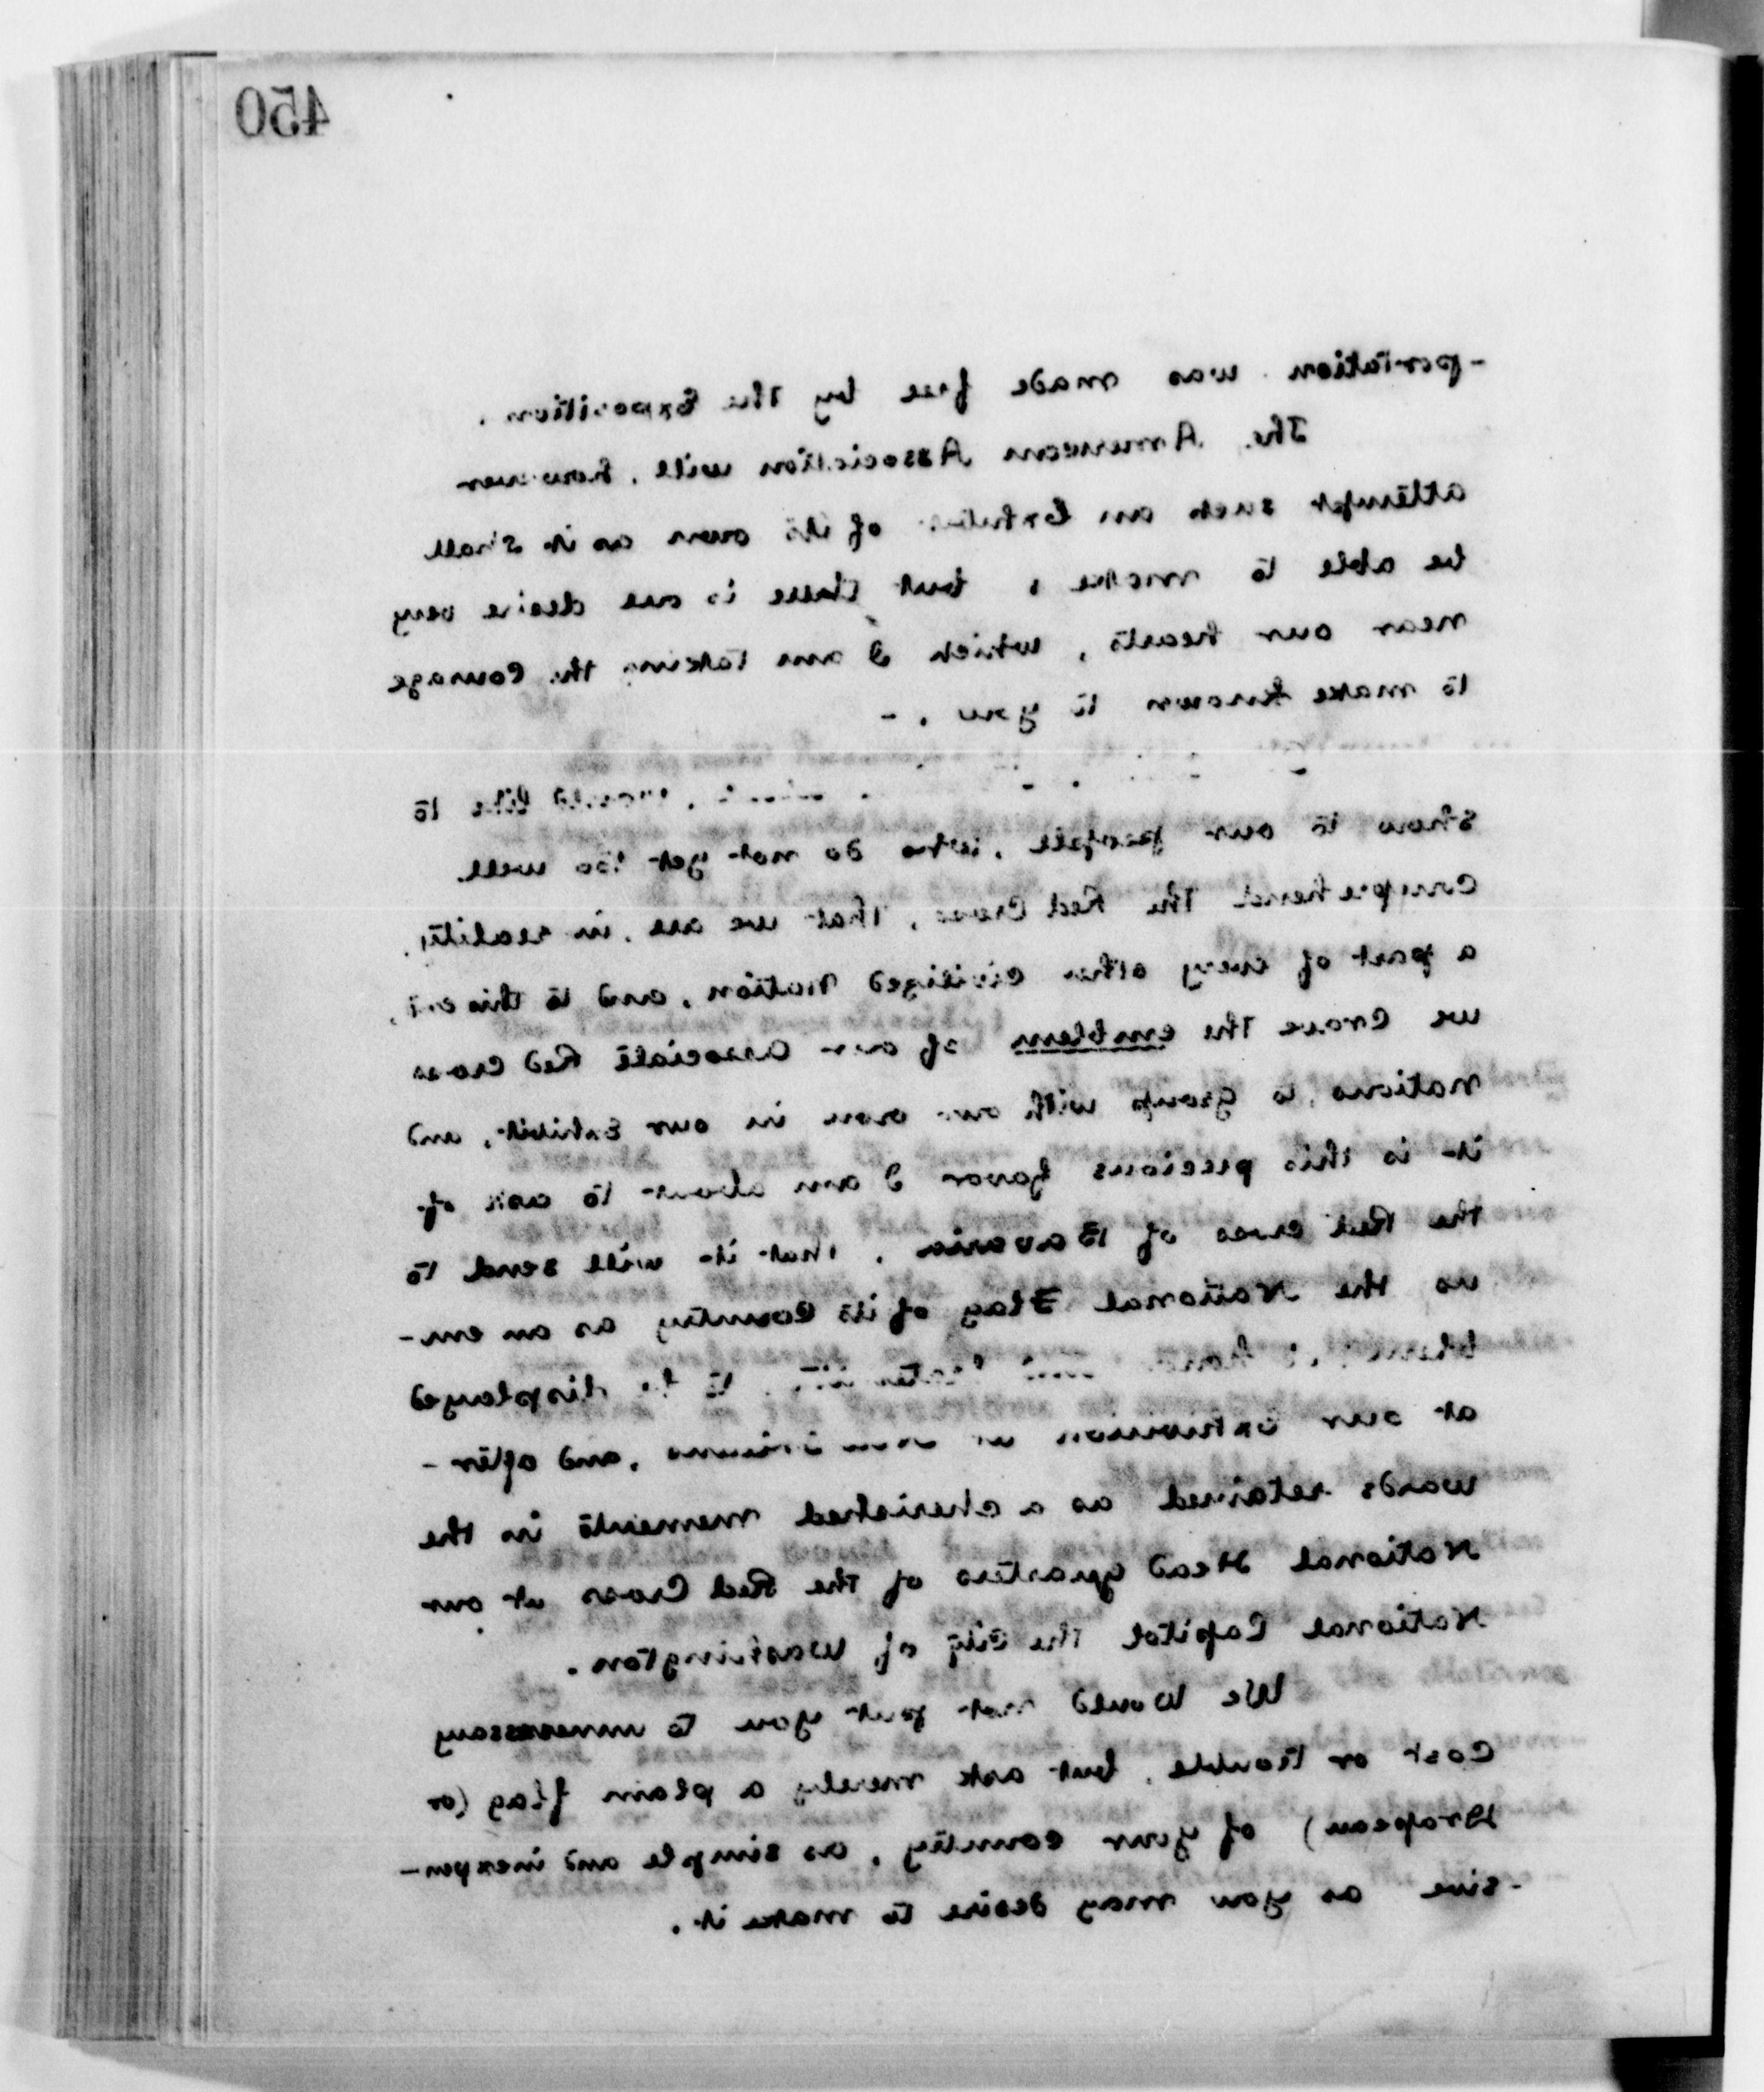 450
-portation was made free by the Exposition.
The American Association will, however
attempt such an Exhibit of its own as it shall
be able to make, but there is one desire very
near our hearts, which I am taking the Courage
to make known to you. -
would like to
show to our people, who do not yet too well
comprehend the Red Cross, that we are, in reality,
a part of every other civilized Nation, and to this end,
we crave the emblem of our associate Red Cross
Nations, to group with our own in our Exhibit, and
it is this precious favor I am about to ask of
the Red Cross of Bavaria, that it will send to
us the National Flag of its Country as an em-
to be displayed
at our Exhibition and after-
wards retained as a cherished memento in the
National Head Quarters of the Red Cross at our
National Capitol the City of Washington.
We would not put you to unnecessary
Cost or trouble, but ask merely a plain flag (or
Drapeau) of your country, as simple and inexpen-
-sive as you may desire to make it.